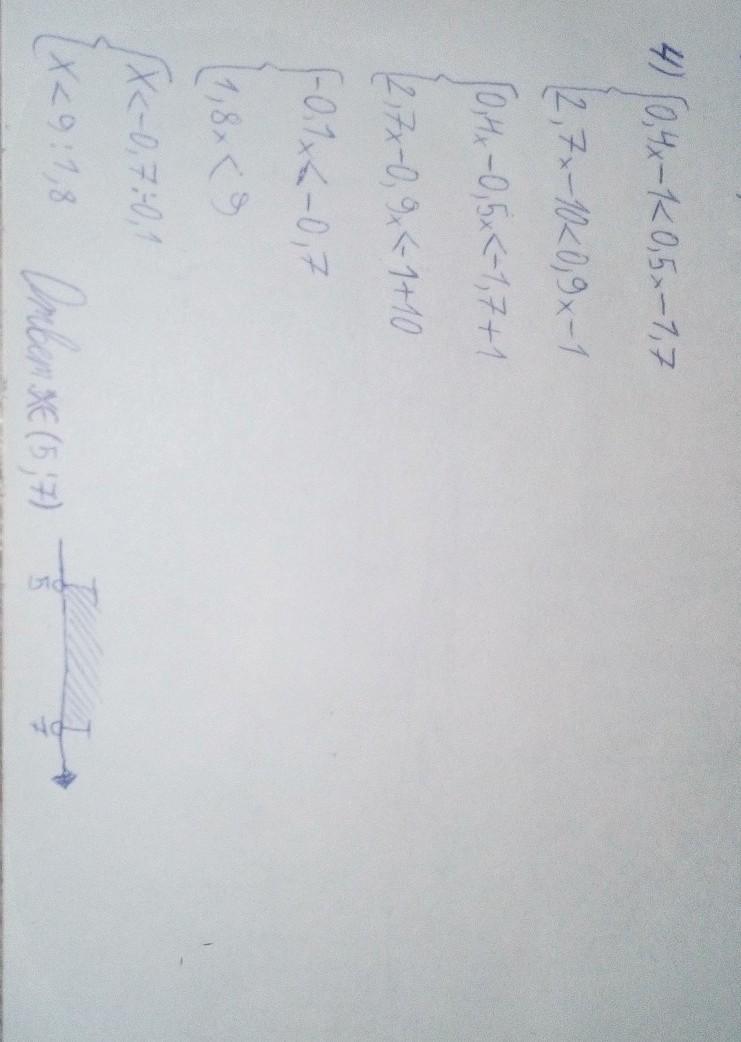 4) {0,4x-1<0,5x-1,7
{2,7x-10<0,9x-1
{0,4x-0,5x<-1,7+1
{2,7x-0,9x<-1+10
{-0,1x<-0,7
{1,8x<9
{x<-0,7:-0,1
{x<9:1,8
Ответ x∈(5;7)
5 7